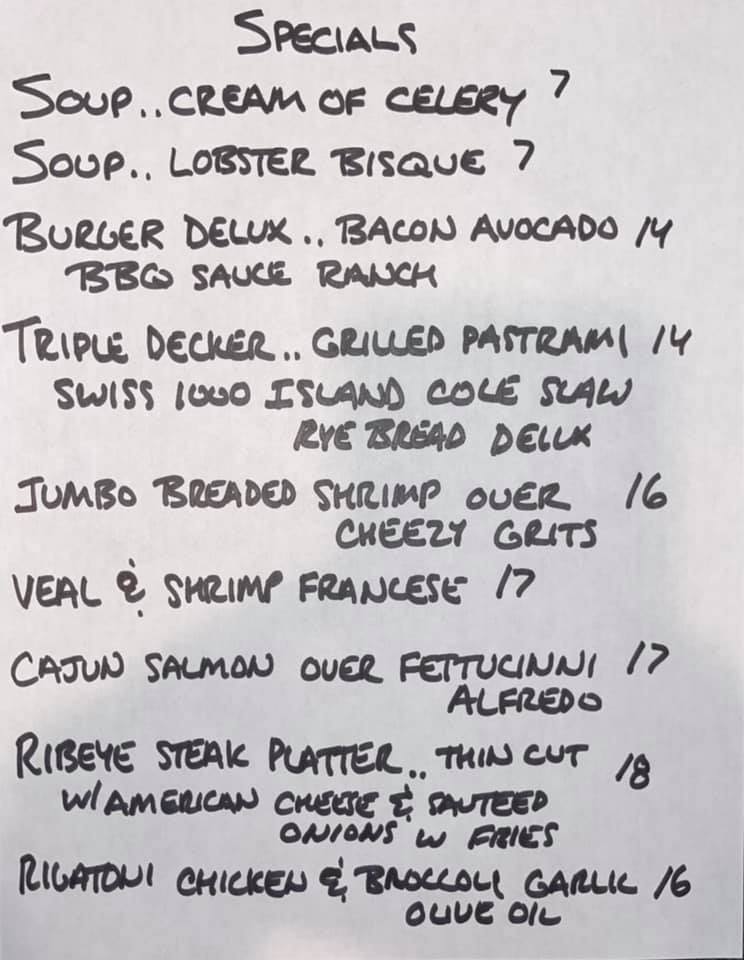 SPECIALS
SOUP.. CREAM OF CELERY 7
SOUP.. LOBSTER BISQUE 7
BURGER DELUX.. BACON AVOCADO 14
BBQ SAUCE RANCH
TRIPLE DECKER.. GRILLED PASTRAMI 14
SWISS 1000 ISLAND COLE SLAW
RYE BREAD DELUX
JUMBO BREADED SHRIMP OVER 16
CHEEZY GRITS
VEAL & SHRIMP FRANCESE 17
CAJUN SALMON OVER FETTUCINNI 17
ALFREDO
RIBEYE STEAK PLATTER.. THIN CUT 18
W/AMERICAN CHEESE & SAUTEED
ONIONS W FRIES
RIGATONI CHICKEN & BROCCOLI GARLIC 16
OLIVE OIL